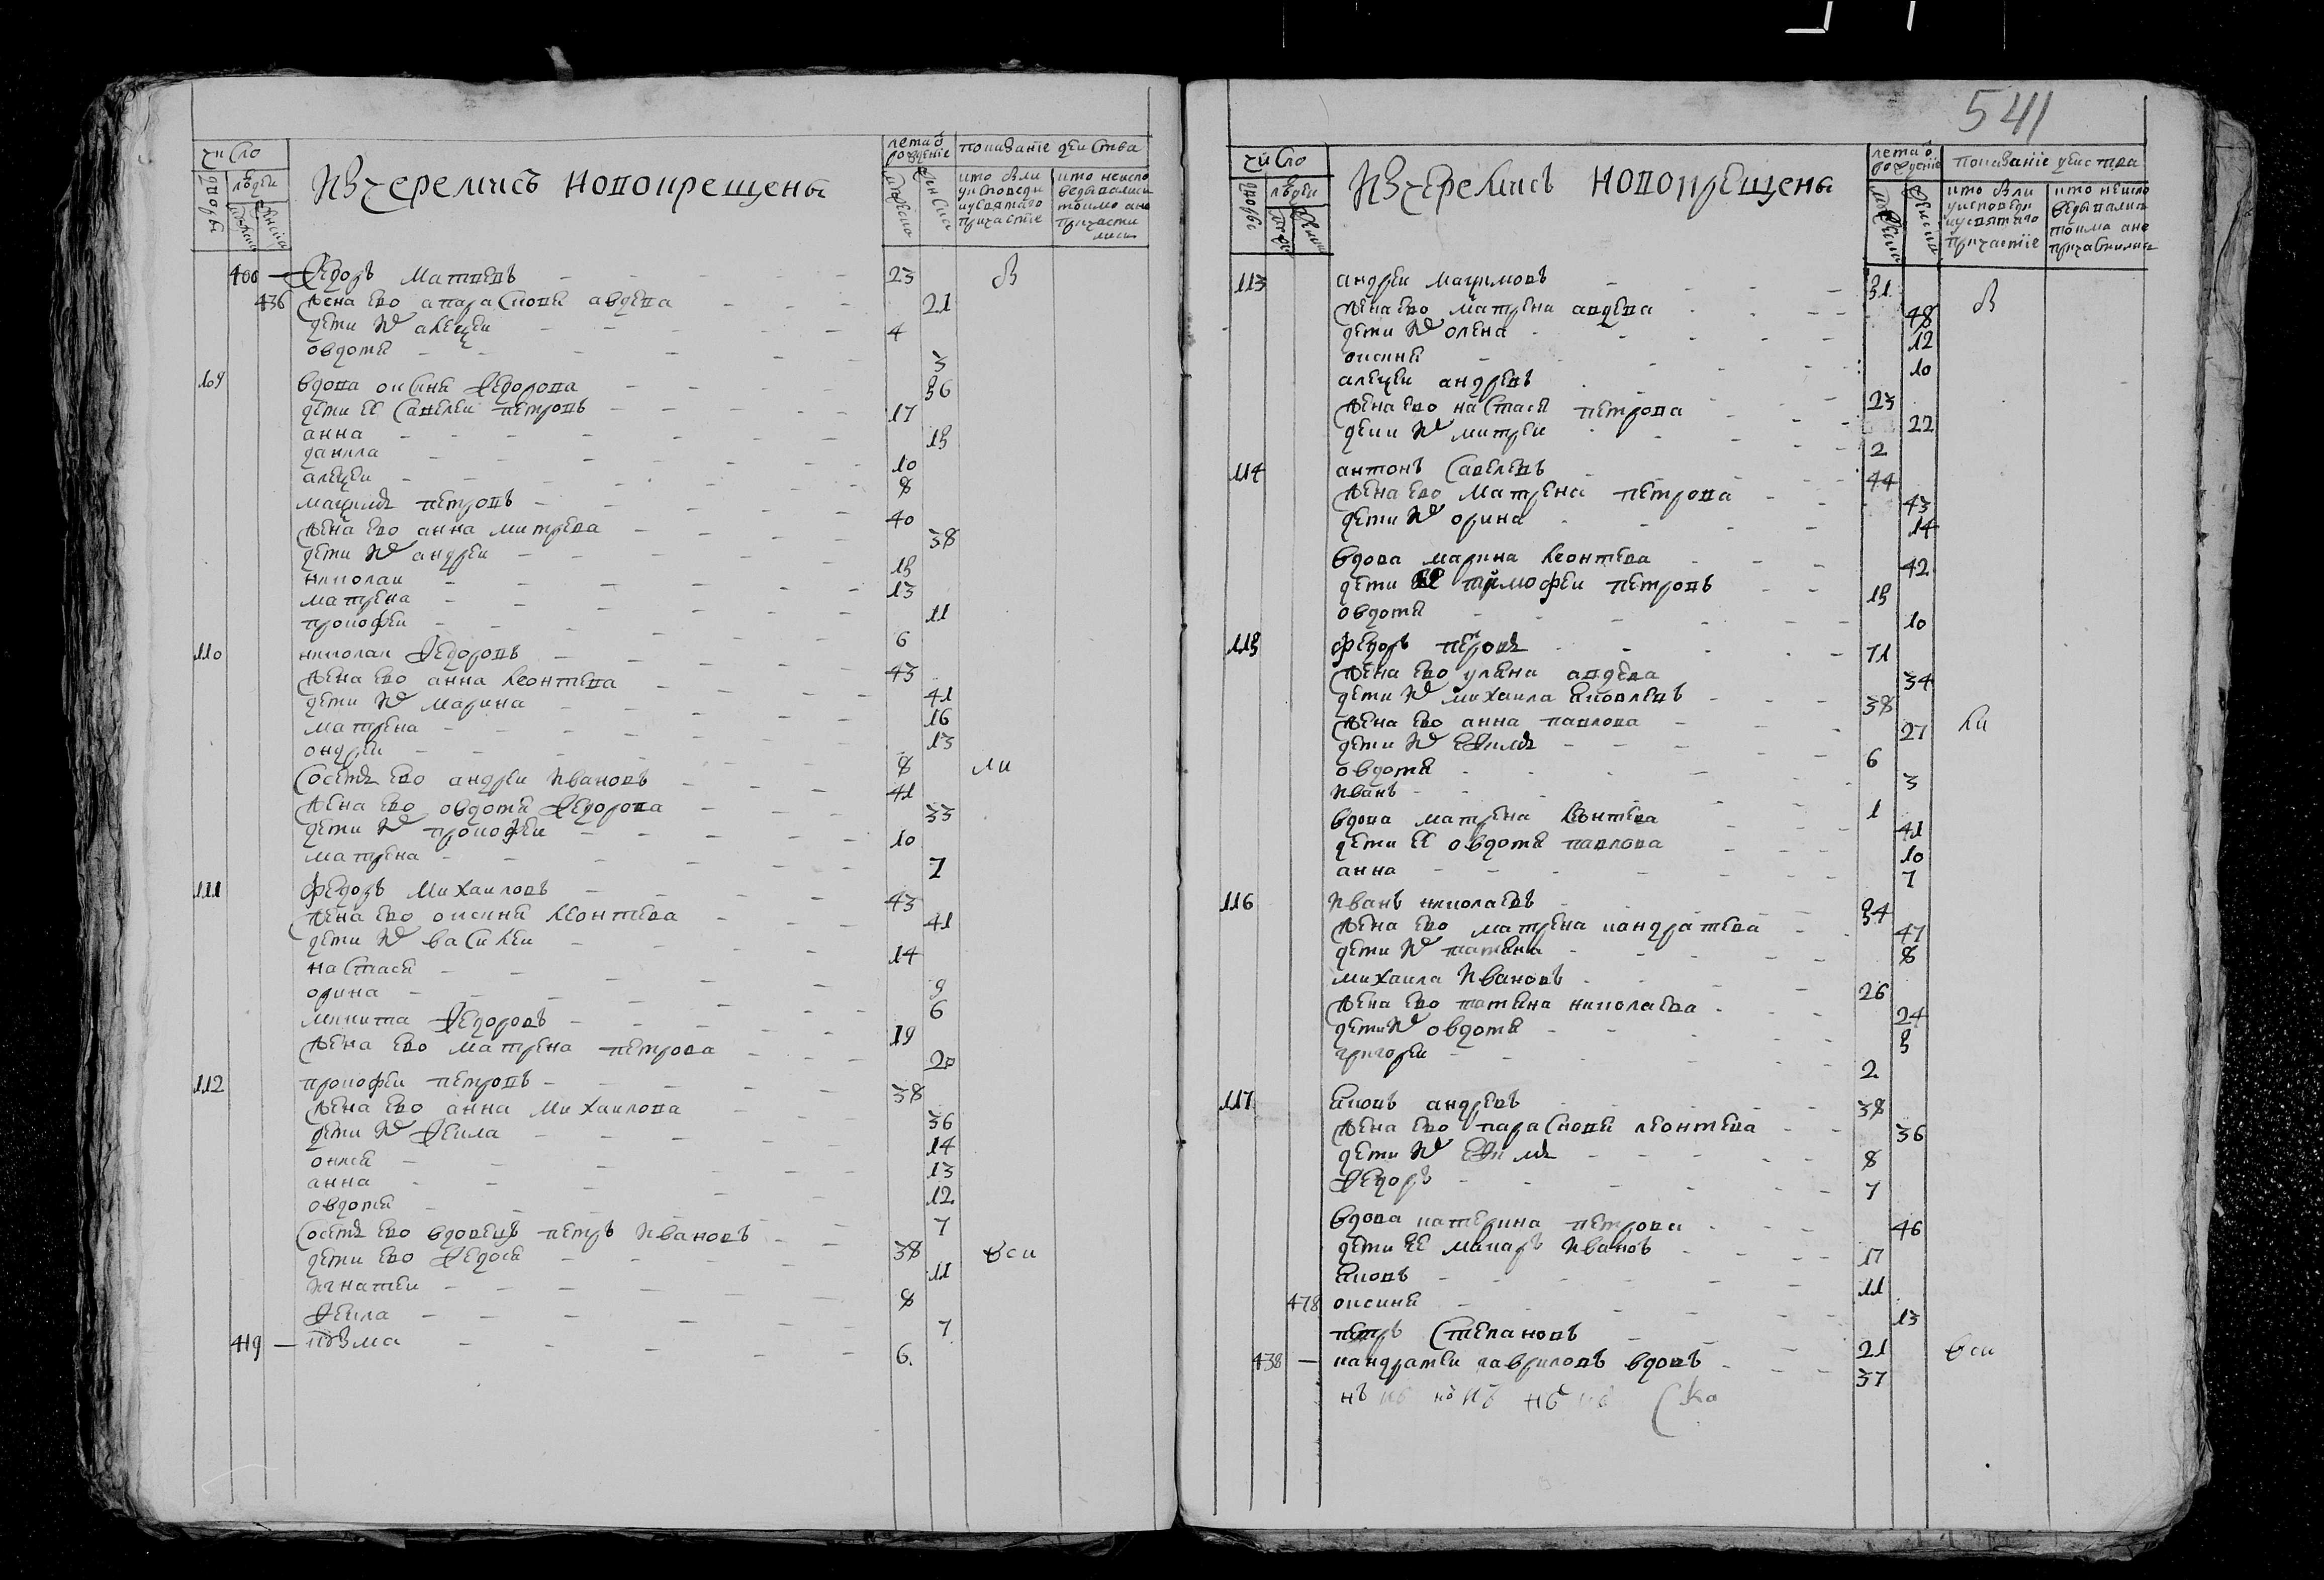 число
дворы
людей
мужеска
женска
Изчеремисъ новокрещены
лета о рождение
мужеска
женска
показание действа
кто были у исповеди и у святаго причастие
кто неисповедывались токмо а не причастились
400 — Федоръ Матвевъ 23 в
436 жена ево апарасковя авдева 21
дети их алецеи 4
овдотя 3
109 вдова оксиня Федорова 36
дети ее Савелеи петровъ 17
анна 15
данила 10
алецеи 8
мацимъ петровъ 40
жена ево анна митрева 38
дети их андреи 15
николаи 13
матрена 11
прокофеи 6
110 николаи Федоровъ 43
жена ево анна леонтева 41
дети их марина 16
матрена 13
ондреи 8
Соседъ ево андреи Ивановъ 41 ли
жена ево овдотя Федорова 33
дети их прокофеи 10
матрена 7
111 Федоръ Михаиловъ 43
жена ево оксиня леонтева 41
дети их василеи 14
настася 9
орина 6
микита Федоровъ 19
жена ево матрена петрова 20
112 прокофеи петровъ 38
жена ево анна Михаилова 36
дети их Фекла 14
анна 12
овдотя 7
Соседъ ево вдовецъ петръ Ивановъ 38 вси
дети ево Федося 11
Игнатеи 8
Фекла 7
419 — козма 6
541
число
дворы
людей
мужеска
женска
Изчеремисъ новокрещены
лета о рождение
мужеска
женска
показание действа
кто были у исповеди и у святаго причастие
кто неисповедывались токмо а не причастились
113 андреи мацимовъ 51 в
жена ево матрена авдева 48
дети их олена 12
оксиня 10
алецеи андревъ 23
жена ево настася петрова 22
дети их митреи 2
114 антонъ Савелевъ 44
жена ево Матрена петрова 43
дети их орина 14
вдова марина леонтева 42
дети ее тимофеи петровъ 15
овдотя 10
115 Федоръ петровъ 71
жена ево уляна авдева 34
дети их михаила яковлевъ 38
жена ево анна павлова 27 ли
дети их Ефимъ 6
овдотя 3
Иванъ 1
вдова матрена леонтева 41
дети ее овдотя павлова 10
анна 7
116 Иванъ николаевъ 54
жена ево матрена кандратева 47
дети их татяна 8
михаила Ивановъ 26
жена ево татяна николаева 24
дети их овдотя 5
григореи 2
117 яковъ андревъ 38
жена ево парасковя леонтева 36
дети их Ефимъ 8
Федоръ 7
вдова катерина петрова 46
дети ее макаръ Ивановъ 17
яковъ 11
478 оксиня 13
петръ Степановъ 21 вси
438 — кандратеи гавриловъ вдовъ 37